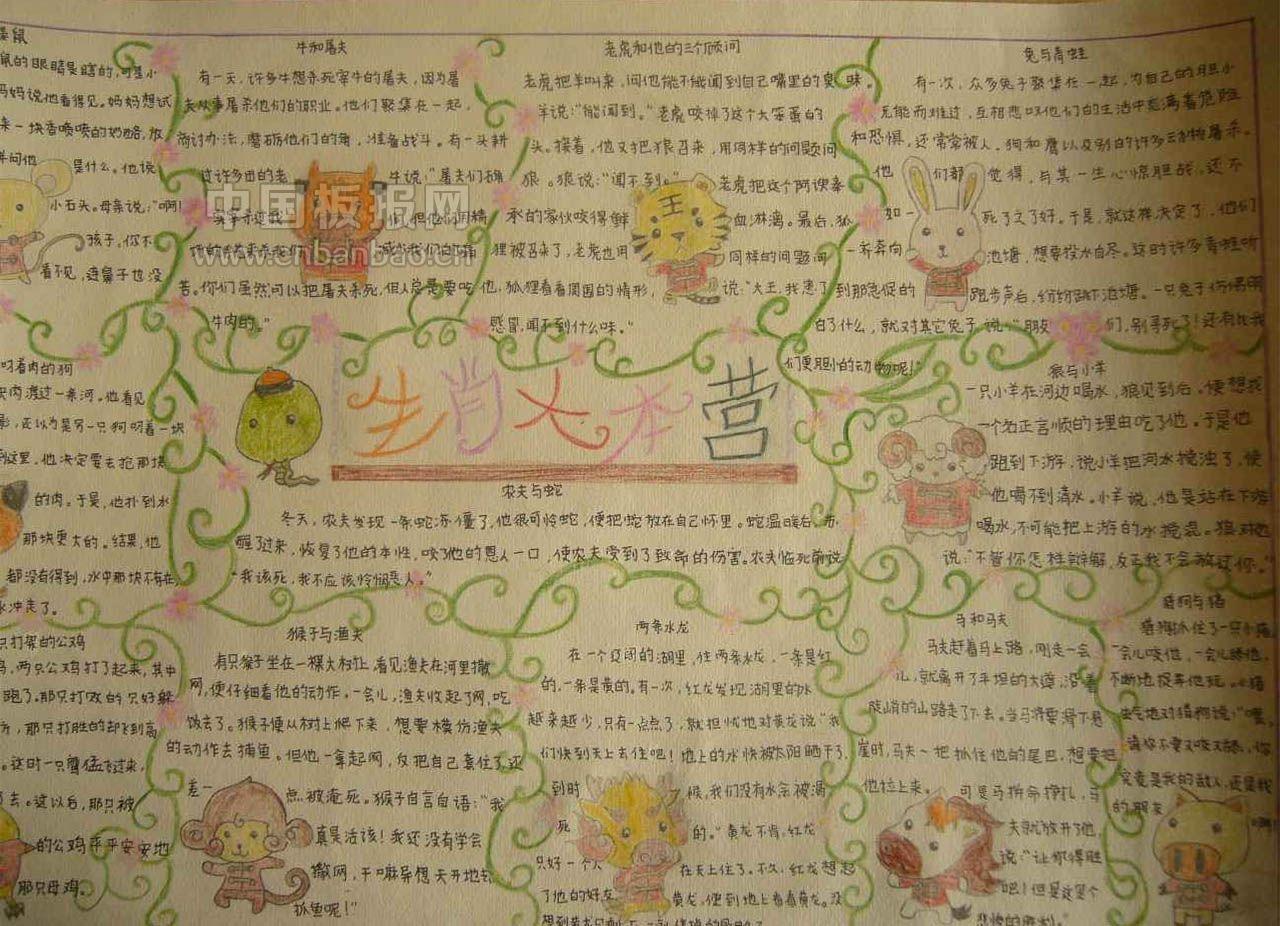 鼠的眼睛是瞎的，可是小
妈妈说他看得见。妈妈想试
来一块香喷喷的奶酪，放
并问他 是什么。他说
小石头。母亲说："啊！
孩子，你不
看不见，连鼻子也没
牛和屠夫
有一天，许多牛想杀死宰牛的屠夫，因为屠
夫从事屠杀他们的职业。他们聚集在一起，
商讨办法，磨砺他们的角，准备战斗。有一头耕
过许多田的老 牛说："屠夫们确
苦。你们虽然可以把屠夫杀死，但人总是要吃
牛肉的。"
老虎和他的三个顾问
老虎把羊叫来，问他能不能闻到自己嘴里的臭味。
羊说："能闻到。"老虎咬掉了这个大笨蛋的
头。接着，他又把狼召来，用同样的问题问
狼。狼说："闻不到。" 老虎把这个阿谀奉
承的家伙咬得鲜 血淋漓。最后，狐
狸被召来了，老虎也用 同样的问题问
他，狐狸看看周围的情形， 说："大王，我患了
感冒，闻不到什么味。"
兔与青蛙
有一次，众多兔子聚集在一起，为自己的胆小
无能而难过，互相悲叹他们的生活中充满着危险
和恐惧，还常常被人、狗和鹰以及别的许多动物屠杀。
他 们都 觉得，与其一生心惊胆战，还不
如一 死了之了好。于是，就这样决定了，他们
一齐奔向 池塘，想要投水自尽。这时许多青蛙听
到那急促的 跑步声后，纷纷跳下池塘。一只兔子仿佛明
白了什么，就对其它兔子说："朋友 们，别寻死了！还有比我
们更胆小的动物呢！"
叼着肉的狗
块肉渡过一条河。他看见
影，还以为是另一只狗叼着一块
到这里，他决定要去抢那块
的肉。于是，他扑到水
那块更大的。结果，他
都没有得到，水中那块不存在，
水冲走了。
生肖大本营
农夫与蛇
冬天，农夫发现一条蛇冻僵了，他很可怜蛇，便把蛇放在自己怀里。蛇温暖后，苏
醒了过来，恢复了他的本性，咬了他的恩人一口，使农夫受到了致命的伤害。农夫临死前说
"我该死，我不应该怜悯恶人。"
狼与小羊
一只小羊在河边喝水，狼见到后，便想找
一个名正言顺的理由吃了他。于是他
跑到下游，说小羊把河水搅浊了，使
他喝不到清水。小羊说，他是站在下游
喝水，不可能把上游的水搅混。狼对他
说："不管你怎样辩解，反正我不会放过你。"
只打架的公鸡
鸡，两只公鸡打了起来，其中
跑了。那只打败的只好躲
方，那只打胜的却飞到高
。这时一只鹰猛飞过来，
了去。这以后，那只被
的公鸡平平安安地
那只母鸡。
猴子与渔夫
有只猴子坐在一棵大树上，看见渔夫在河里撒
网，便仔细看他的动作。一会儿，渔夫收起了网，吃
饭去了。猴子便从树上爬下来，想要模仿渔夫
的动作去捕鱼。但他一拿起网，反把自己套住了，还
差一 点被淹死。猴子自言自语："我
真是活该！我还没有学会
撒网，干嘛异想天开地去
抓鱼呢！"
两条水龙
在一个辽阔的湖里，住两条水龙，一条是红
的，一条是黄的。有一次，红龙发现湖里的水
越来越少，只有一点点了，就担忧地对黄龙说："我
们快到天上去住吧！地上的水快被太阳晒干了，
到时 候，我们没有水会被渴
死 的。"黄龙不肯，红龙
只好一个人 在天上住了。不久，红龙想起
了他的好友 黄龙，便到地上看看黄龙。没
马和马夫
马夫赶着马上路，刚走一会
儿，就离开了平坦的大道，沿着
陡峭的山路走了下去。当马将要滑下悬
崖时，马夫一把抓住他的尾巴，想要把
他拉上来。 可是马拼命挣扎，马
夫就放开了他，
说："让你得胜
吧！但是这是个
悲惨的胜利。"
猎狗与猪
猎狗抓住了一只小猪
一会儿咬他，一会儿舔他，
生气地对猎狗说："喂，
请你不要又咬又舔，你
究竟是我的敌人，还是我
的朋友 啊
中国板报网
www.cnbanbao.cn